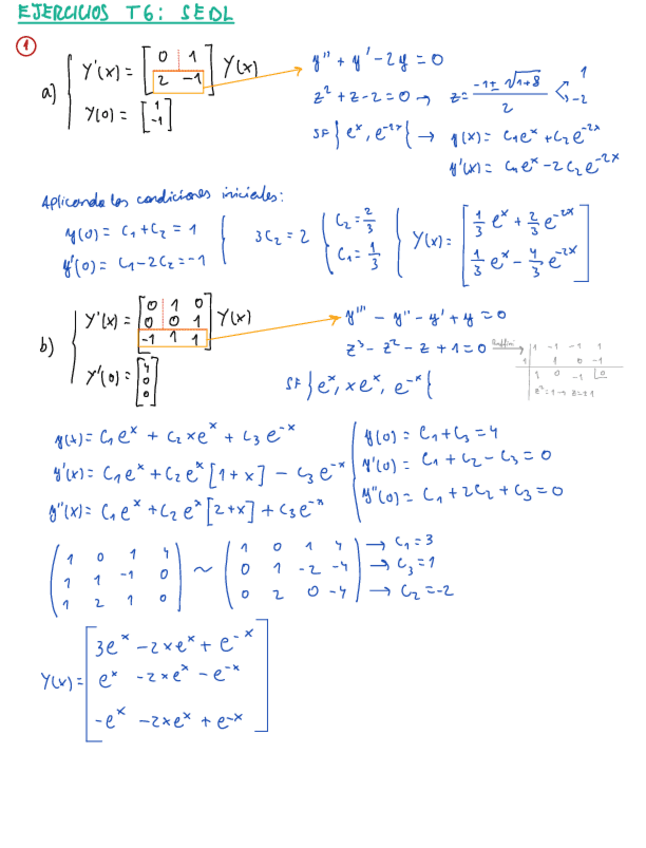 EJERCICIOS T6: SEDL
1
a) { Y'(x) = [0 1; 2 -1] Y(x) → y'' + y' - 2y = 0
Y(0) = [1; -1]
z² + z - 2 = 0 → z = (-1 ± √(1+8))/2 < 1, -2
SF {eˣ, e⁻²ˣ{ → y(x) = C₁eˣ + C₂e⁻²ˣ
y'(x) = C₁eˣ - 2C₂e⁻²ˣ
Aplicando las condiciones iniciales:
y(0) = C₁ + C₂ = 1
y'(0) = C₁ - 2C₂ = -1
{ 3C₂ = 2 { C₂ = 2/3
C₁ = 1/3
{ Y(x) = [1/3 eˣ + 2/3 e⁻²ˣ; 1/3 eˣ - 4/3 e⁻²ˣ]
b) { Y'(x) = [0 1 0; 0 0 1; -1 1 1] Y(x) → y''' - y'' - y' + y = 0
Y'(0) = [4; 0; 0]
z³ - z² - z + 1 = 0 Ruffini →
1 -1 -1 1
1 | 1 0 -1
1 0 -1 |0
z² = 1 → z = ±1
SF {eˣ, xeˣ, e⁻ˣ{
y(x) = C₁eˣ + C₂xeˣ + C₃e⁻ˣ
y'(x) = C₁eˣ + C₂eˣ[1+x] - C₃e⁻ˣ
y''(x) = C₁eˣ + C₂eˣ[2+x] + C₃e⁻ˣ
y(0) = C₁ + C₃ = 4
y'(0) = C₁ + C₂ - C₃ = 0
y''(0) = C₁ + 2C₂ + C₃ = 0
(1 0 1 4; 1 1 -1 0; 1 2 1 0) ~ (1 0 1 4; 0 1 -2 -4; 0 2 0 -4)
→ C₁ = 3
→ C₃ = 1
→ C₂ = -2
Y(x) = [3eˣ - 2xeˣ + e⁻ˣ; eˣ - 2xeˣ - e⁻ˣ; -eˣ - 2xeˣ + e⁻ˣ]